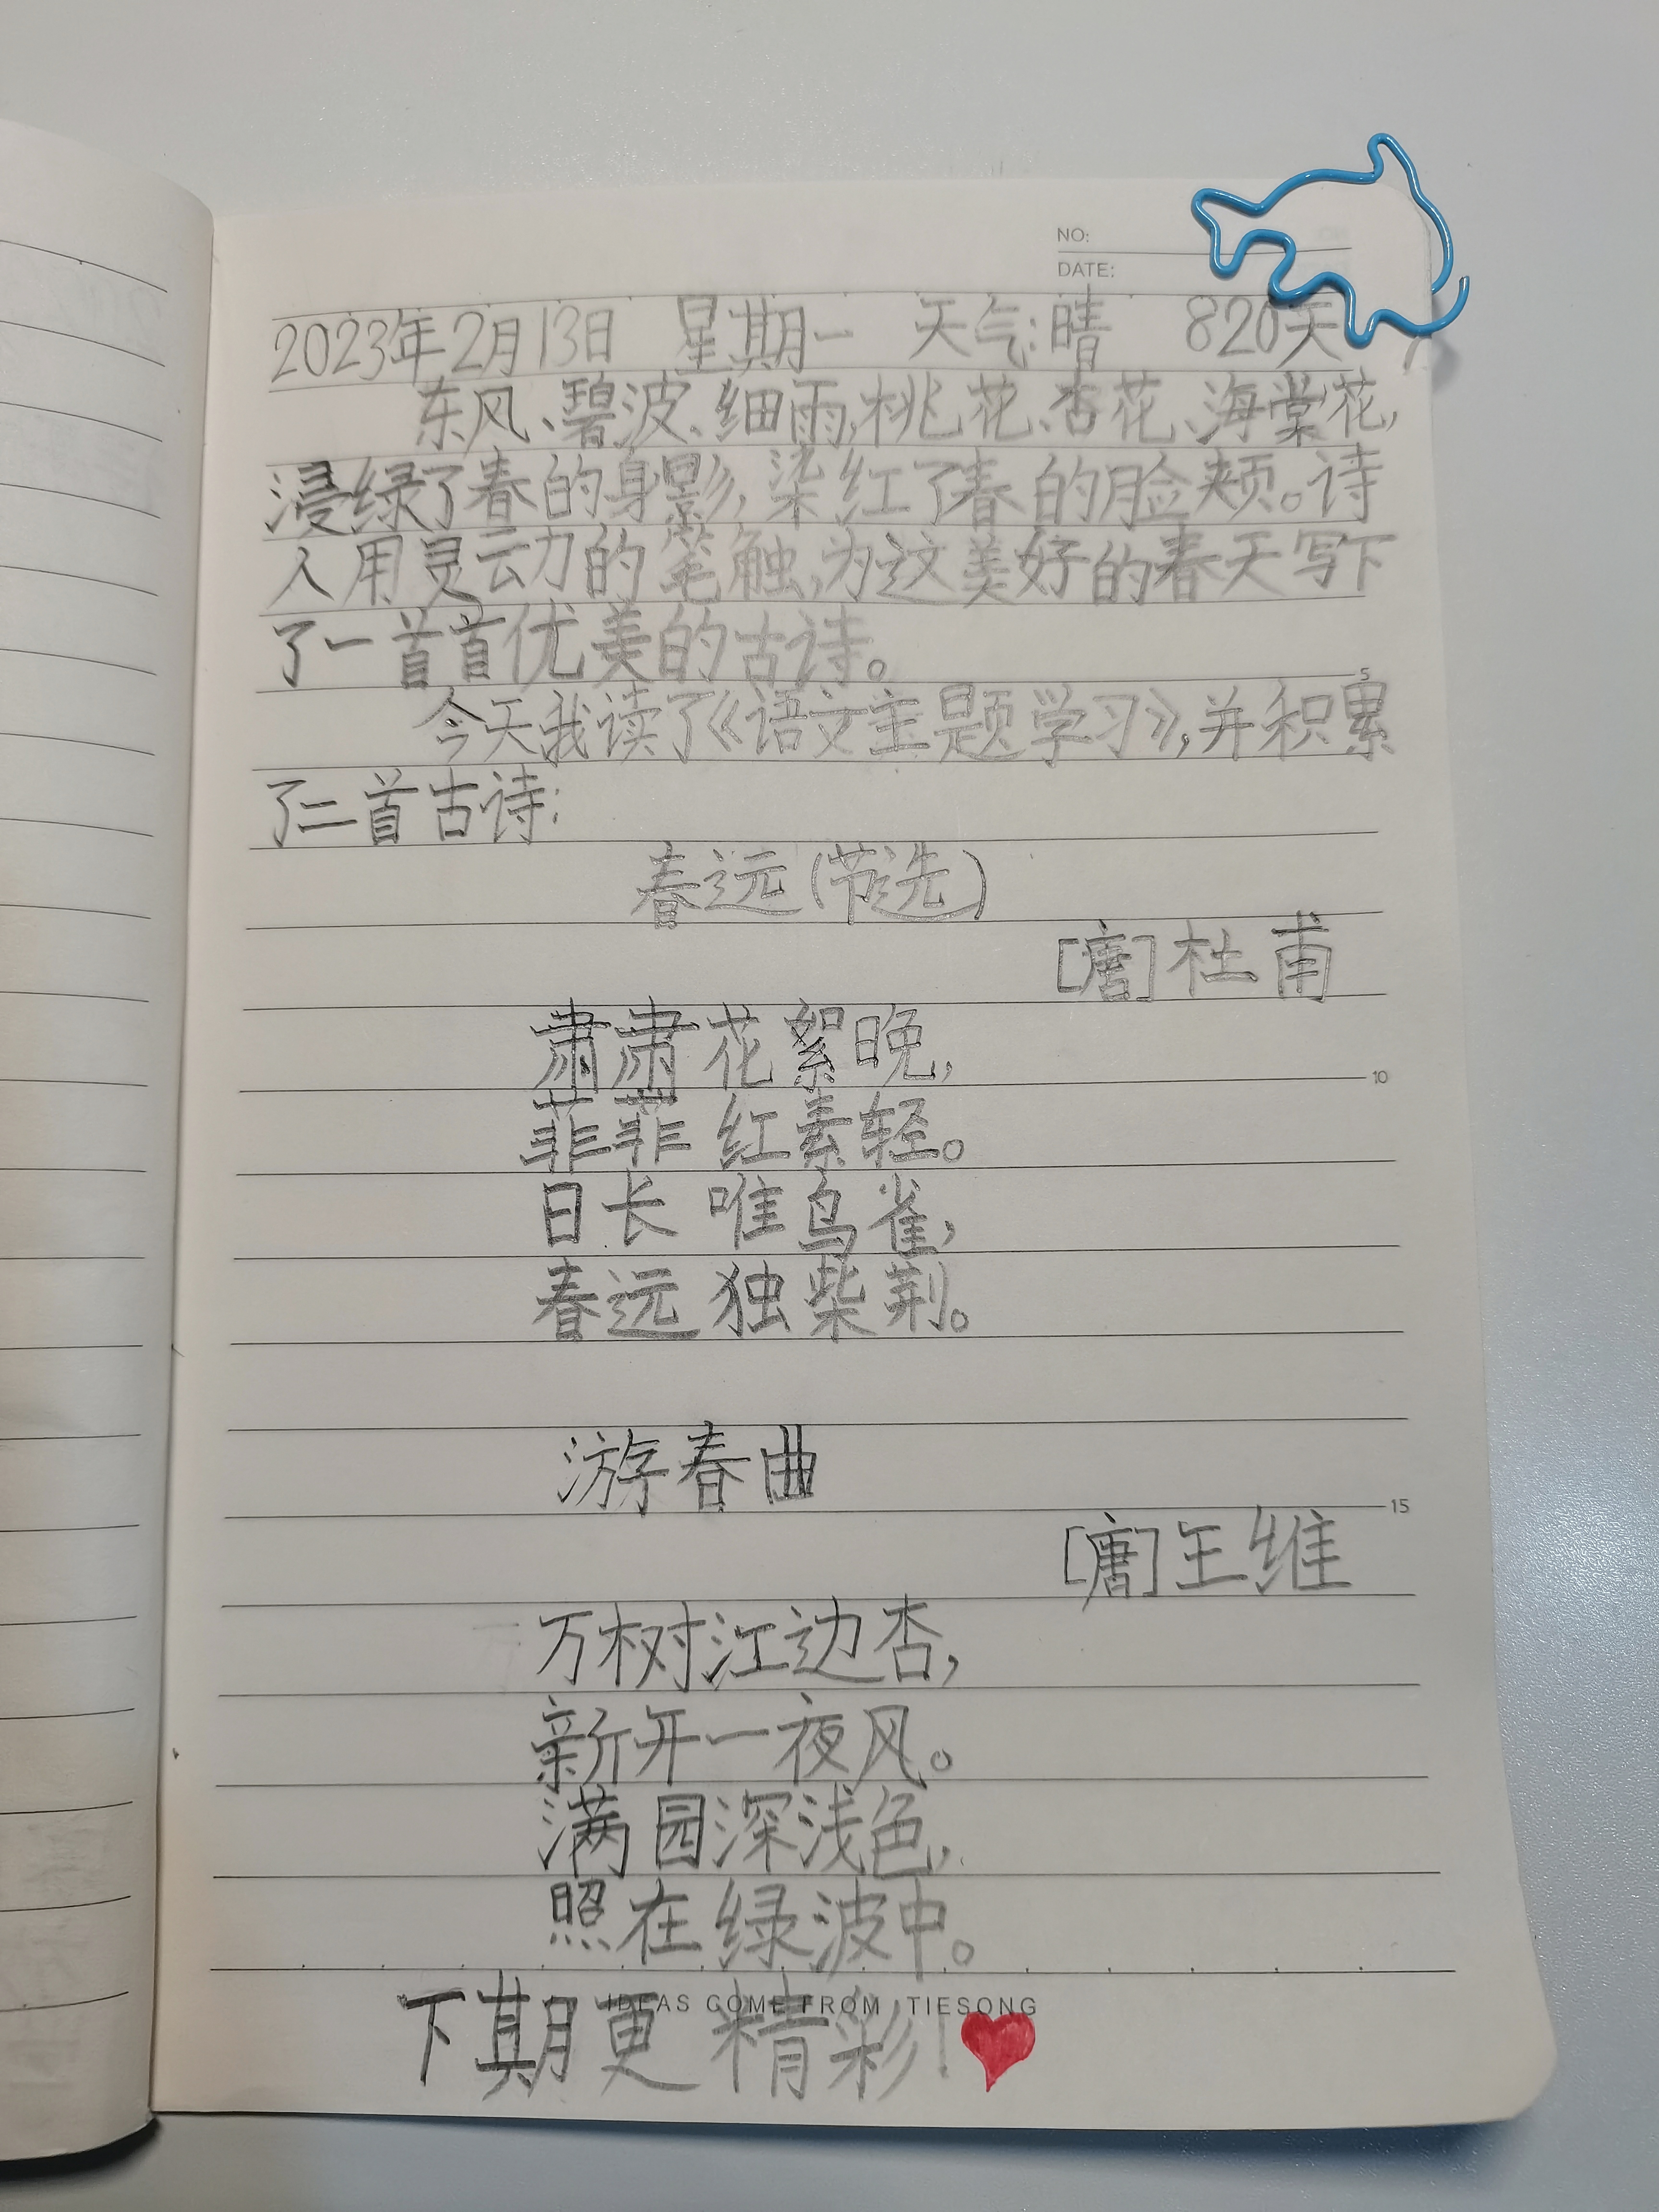 NO:
DATE:
2023年2月13日 星期一 天气:晴 820天
东风、碧波、细雨,桃花、杏花、海棠花,
浸绿了春的身影,染红了春的脸颊。诗
人用灵动的笔触,为这美好的春天写下
了一首首优美的古诗。
5
今天我读了《语文主题学习》,并积累
了二首古诗:
春远(节选)
[唐]杜甫
肃肃花絮晚,
10
菲菲红素轻。
日长唯鸟雀,
春远独柴荆。
游春曲
15
[唐]王维
万树江边杏,
新开一夜风。
满园深浅色,
照在绿波中。
IDEAS COME FROM TIESONG
下期更精彩!